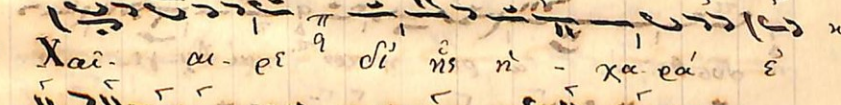 Χαῖ- αι- ρε δι' ἧς ἡ - χα ρά ἐ